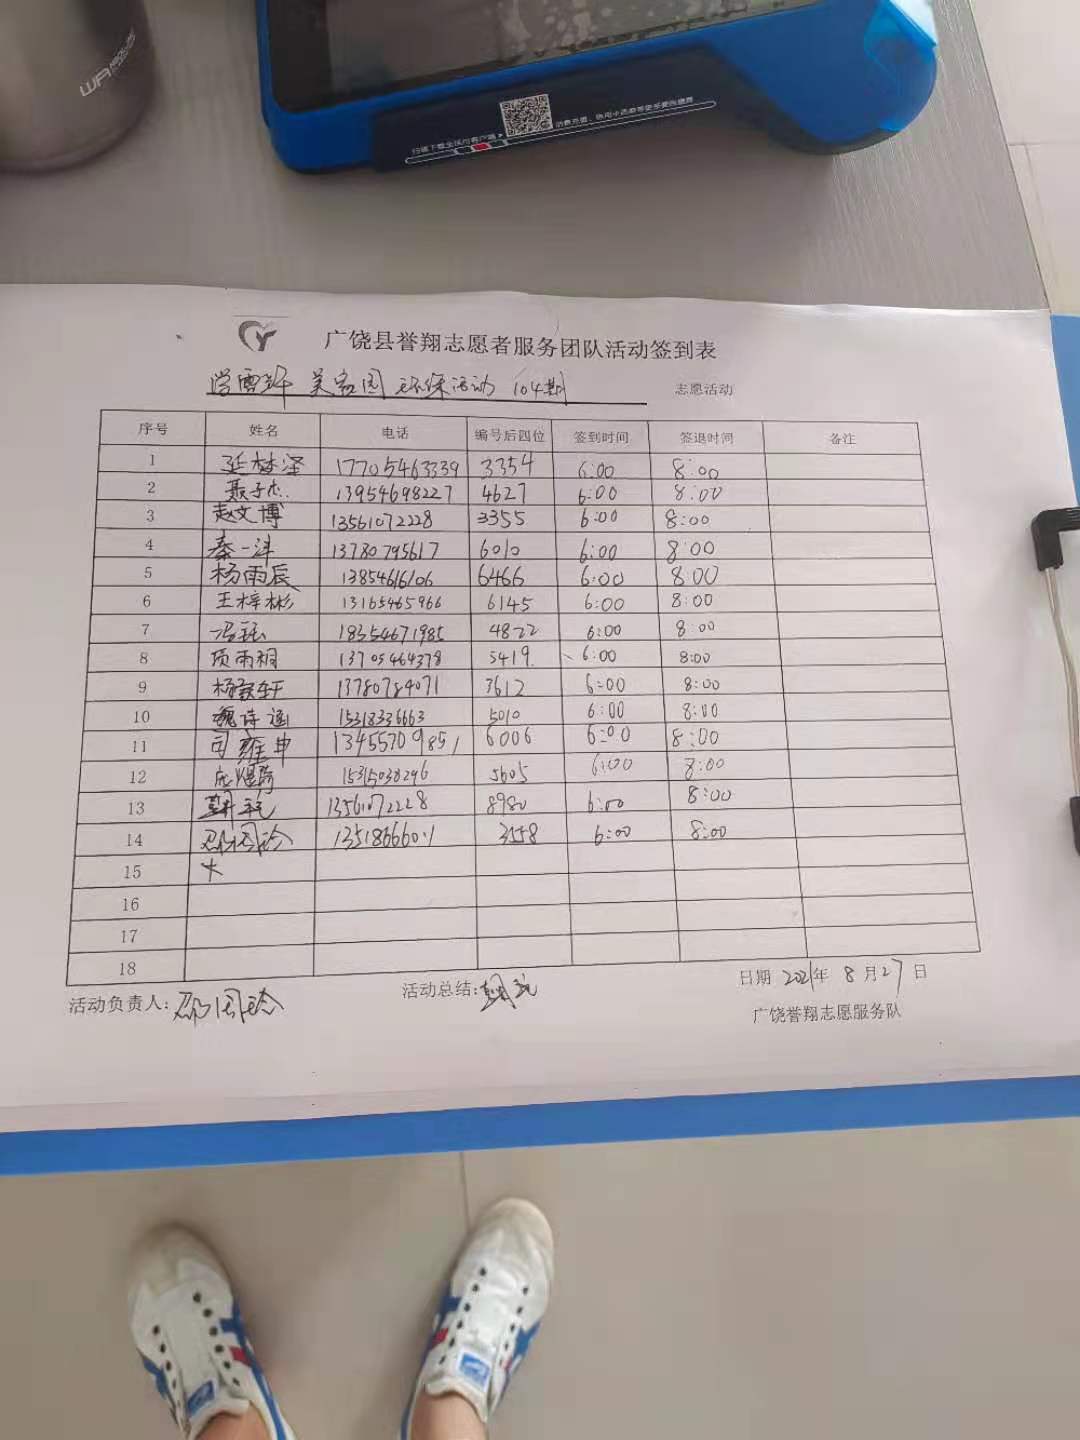 WA
扫码下载全球付客户端
广饶县誉翔志愿者服务团队活动签到表
学雷锋 吴家园 环保活动 104期 志愿活动
序号 姓名 电话 编号后四位 签到时间 签退时间 备注
1 延梦泽 17705463339 3354 6:00 8:00
2 聂子杰 13954698227 4627 6:00 8:00
3 赵文博 13561072228 3355 6:00 8:00
4 秦一沣 13780795617 6010 6:00 8:00
5 杨雨辰 13854616106 6466 6:00 8:00
6 王梓彬 13165465966 6145 6:00 8:00
7 18354671985 4822 6:00 8:00
8 项雨桐 13705464378 5419 6:00 8:00
9 13780784071 3612 6:00 8:00
10 魏诗涵 15318336663 5010 6:00 8:00
11 司雍申 13455709851 6006 6:00 8:00
12 15315038296 5605 6:00 8:00
13 13561072228 8980 6:00 8:00
14 13518666011 3558 6:00 8:00
15
16
17
18
活动负责人: 活动总结: 日期 2021年 8月27日
广饶誉翔志愿服务队